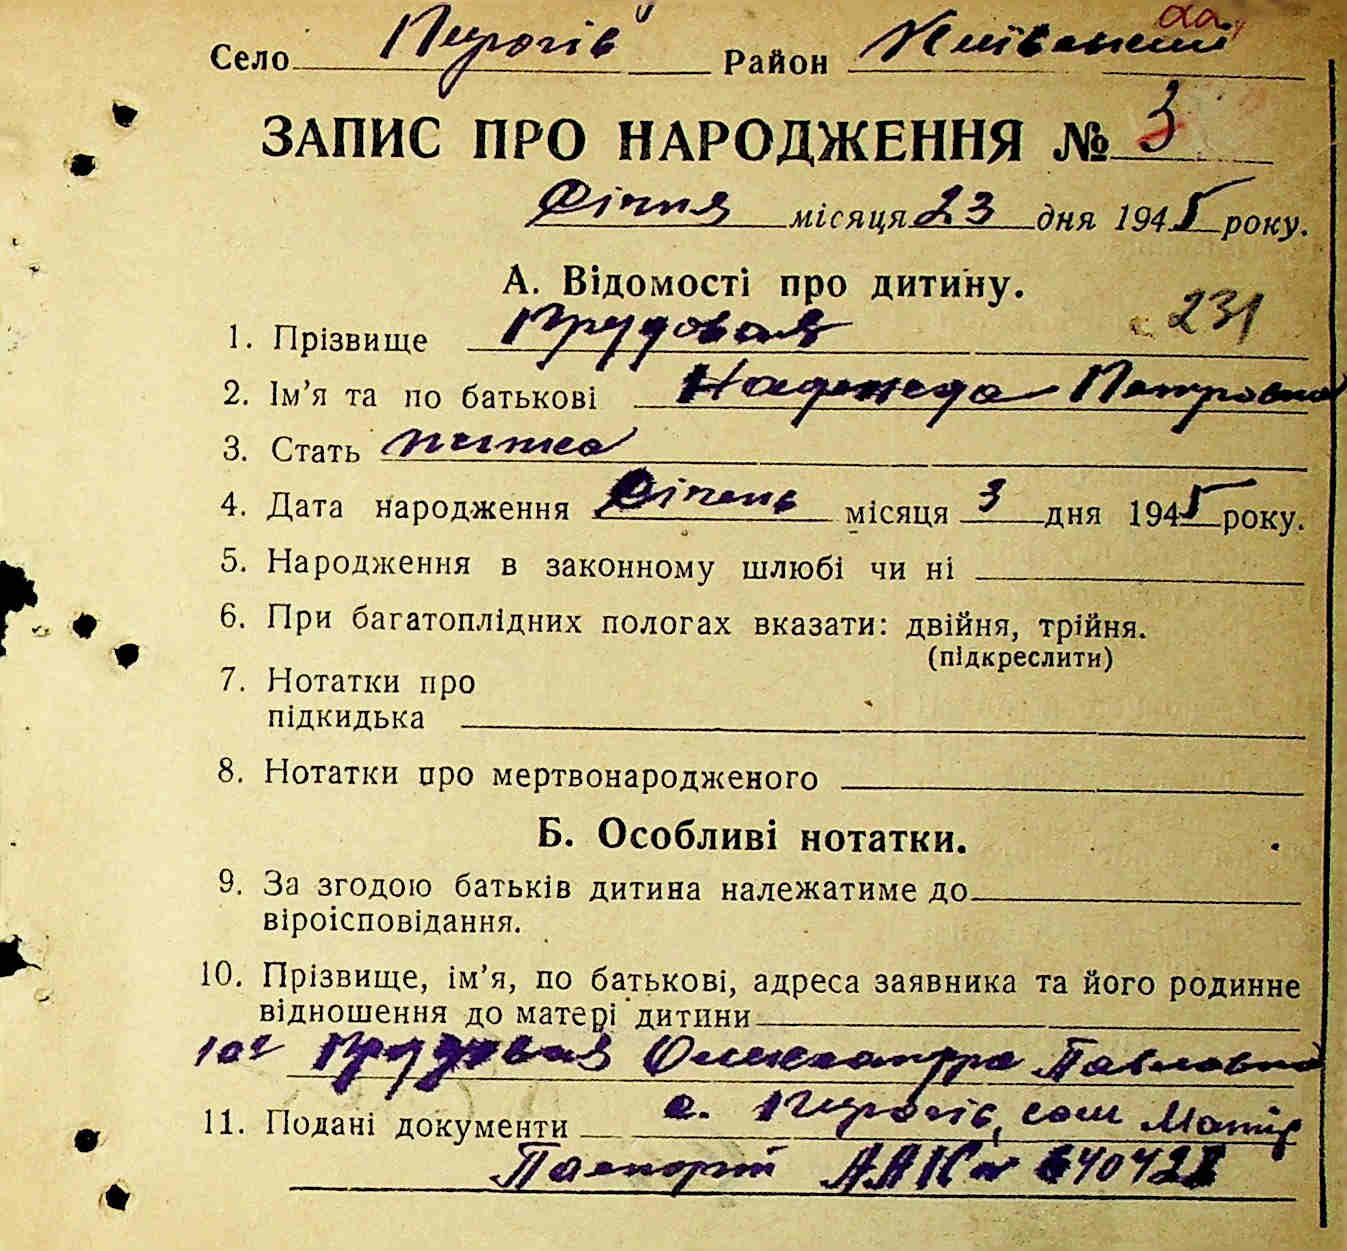 Село Пирогів Район Київський
ЗАПИС ПРО НАРОДЖЕННЯ № 3
Січня місяця 23 дня 1945 року.
А. Відомості про дитину.
231
1. Прізвище Прудовая
2. Ім’я та по батькові Надежда Петровна
3. Стать
4. Дата народження Січень місяця 3 дня 1945 року.
5. Народження в законному шлюбі чи ні
6. При багатоплідних пологах вказати: двійня, трійня.
(підкреслити)
7. Нотатки про
підкидька
8. Нотатки про мертвонародженого
Б. Особливі нотатки.
9. За згодою батьків дитина належатиме до
віроісповідання.
10. Прізвище, ім’я, по батькові, адреса заявника та його родинне
відношення до матері дитини
Прудовая Олександра Павловна
с. Пирогів, сам Матір
11. Подані документи
Паспорт